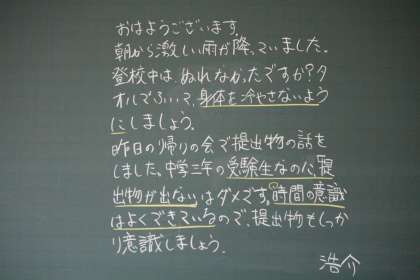 おはようございます。
朝から激しい雨が降っていました。
登校中は、ぬれなかったですか？タ
オルでふいて、身体を冷やさないよう
にしましょう。
昨日の帰りの会で提出物の話を
しました。中学三年の受験生なのに、「提
出物が出ない」はダメです。時間の意識
はよくできているので、提出物もしっか
り意識しましょう。
浩介